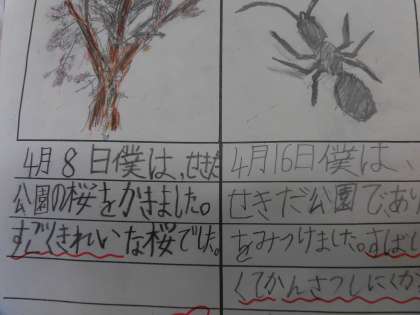 4月8日僕は、せきだ
公園の桜をかきました。
すごくきれいな桜でした。
4月16日僕は、
せきだ公園であり
をみつけました。すばし
くてかんさつしにくか